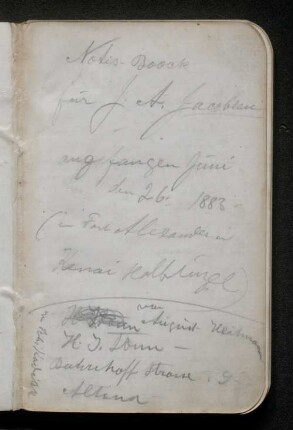 Notis-Boock
für J. A. Jacobsen
angfangen Juni
den 26 1883-
(in Fort Alexander in
Kenai Halbinzel)
von August Heitmann
H. J. Tonn -
Bahnhoff Strasse
Altona